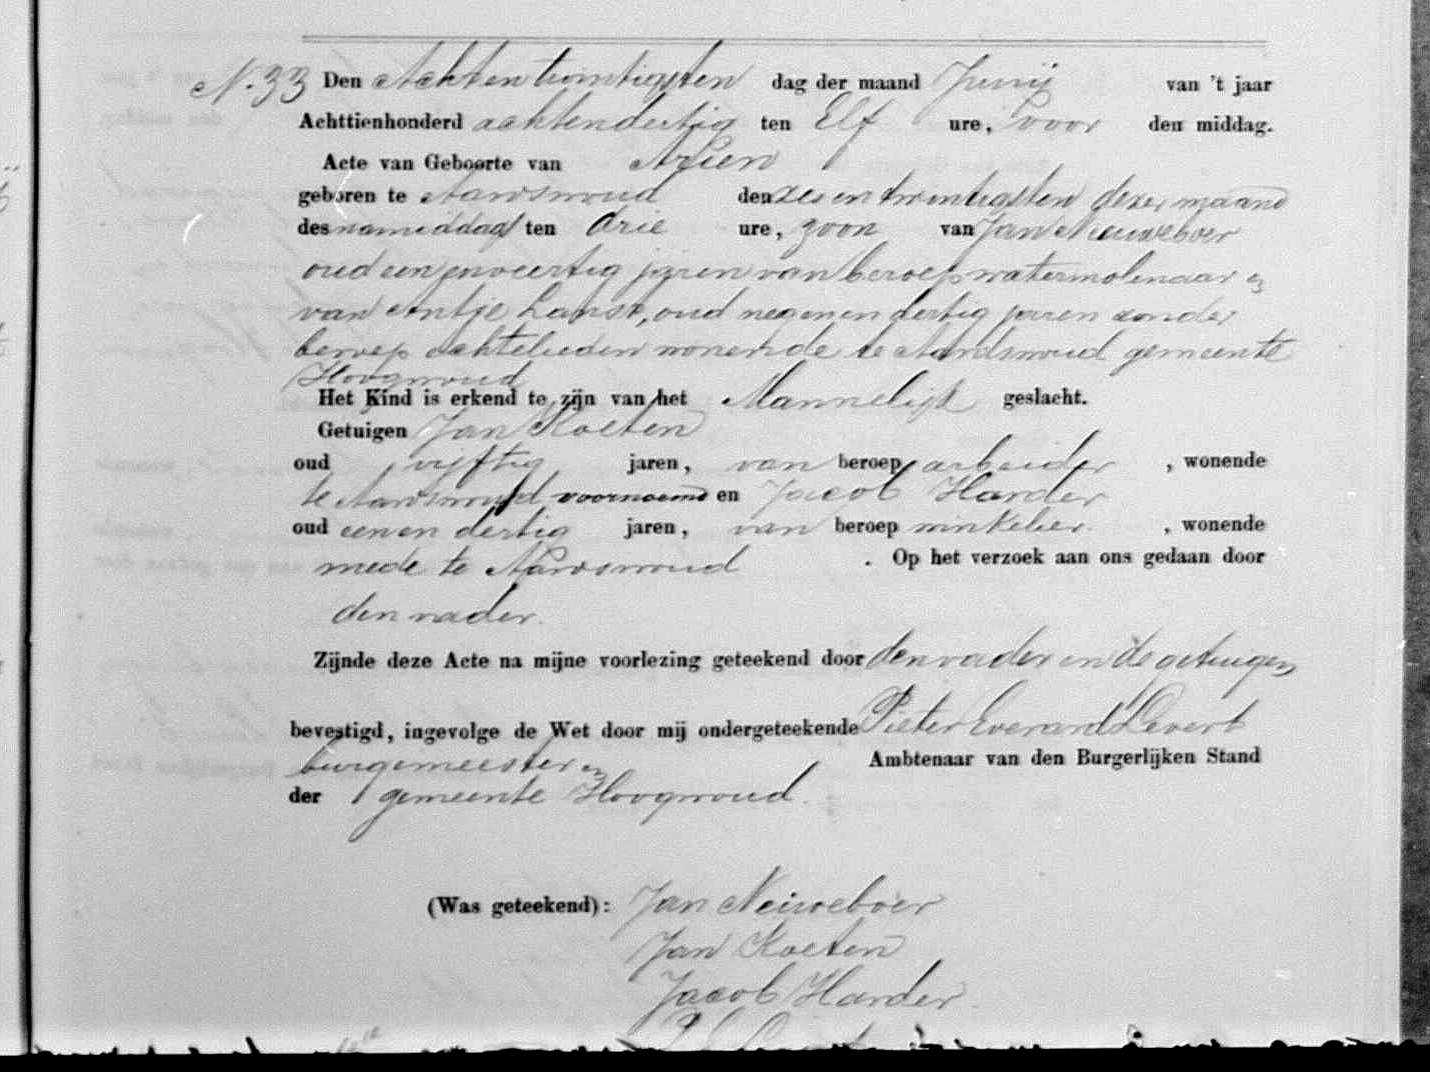 N. 33 Den Achtentwintigsten dag der maand Junij van 't jaar
Achttienhonderd achtendertig ten Elf ure, voor den middag.
Acte van Geboorte van Arien
geboren te Aardswoud den zesentwintigsten dezer maand
des namiddags ten drie ure, zoon van Jan Nieuweboer
oud eenenveertig jaren van beroep watermolenaar en
van Antje oud negenendertig jaren zonder
beroep echtelieden wonende te Aardswoud gemeente
Hoogwoud
Het Kind is erkend te zijn van het Mannelijk geslacht.
Getuigen Jan Koeten
oud vijftig jaren, van beroep arbeider, wonende
te Aardswoud voornoemd en Jacob Harder
oud eenen dertig jaren, van beroep winkelier, wonende
mede te Aardswoud. Op het verzoek aan ons gedaan door
den vader.
Zijnde deze Acte na mijne voorlezing geteekend door den vader en de getuigen
bevestigd, ingevolge de Wet door mij ondergeteekende Pieter Everard Levert
burgemeester en Ambtenaar van den Burgerlijken Stand
der gemeente Hoogwoud.
(Was geteekend): Jan Neiuweboer
Jan Koeten
Jacob Harder